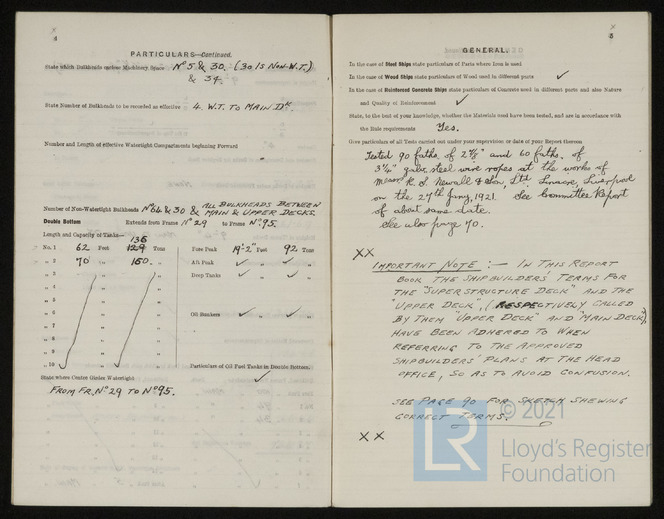 4
PARTICULARS—Continued.
State which Bulkheads enclose Machinery Space Nº 5 & 30. (30 IS NON-W.T.)
& 34.
State Number of Bulkheads to be recorded as effective 4. W.T. TO MAIN DK.
Number and Length of effective Watertight Compartments beginning Forward
Number of Non-Watertight Bulkheads Nº 64 & 30 & ALL BULKHEADS BETWEEN
MAIN & UPPER DECKS.
Double Bottom Extends from Frame Nº 29 to Frame Nº 95.
Length and Capacity of Tanks—
136
No. 1 62 Feet 129 Tons Fore Peak 19'-2" Feet 92. Tons
" 2 70 " 150. " Aft Peak ✓ " ✓ "
" 3 " " Deep Tanks ✓ " ✓ "
" 4 " "
" 5 " "
" 6 " " Oil Bunkers ✓ " ✓ "
" 7 " "
" 8 " "
" 9 " "
" 10 ✓ " ✓ " Particulars of Oil Fuel Tanks in Double Bottom.
State where Centre Girder Watertight ✓
FROM FR. Nº 29 TO Nº 95.
5
GENERAL.
In the case of Steel Ships state particulars of Parts where Iron is used
In the case of Wood Ships state particulars of Wood used in different parts ✓
In the case of Reinforced Concrete Ships state particulars of Concrete used in different parts and also Nature
and Quality of Reinforcement ✓
State, to the best of your knowledge, whether the Materials used have been tested, and are in accordance with
the Rule requirements Yes.
Give particulars of all Tests carried out under your supervision or date of your Report thereon
Tested 90 faths. of 2⅞" and 60 faths. of
3¼" galv. steel wire ropes at the works of
Messrs R. S. Newall & Son, Ltd. Liverpool
on the 27th Jany, 1921. See Committee Report
of about same date.
See also page 70.
XX
IMPORTANT NOTE :— IN THIS REPORT
BOOK THE SHIPBUILDERS' TERMS FOR
THE "SUPERSTRUCTURE DECK" AND THE
"UPPER DECK", (RESPECTIVELY CALLED
BY THEM "UPPER DECK" AND "MAIN DECK"),
HAVE BEEN ADHERED TO WHEN
REFERRING TO THE APPROVED
SHIPBUILDERS' PLANS AT THE HEAD
OFFICE, SO AS TO AVOID CONFUSION.
SEE PAGE 90 FOR SKETCH SHEWING
CORRECT TERMS.
XX
© 2021
LR
Lloyd's Register
Foundation